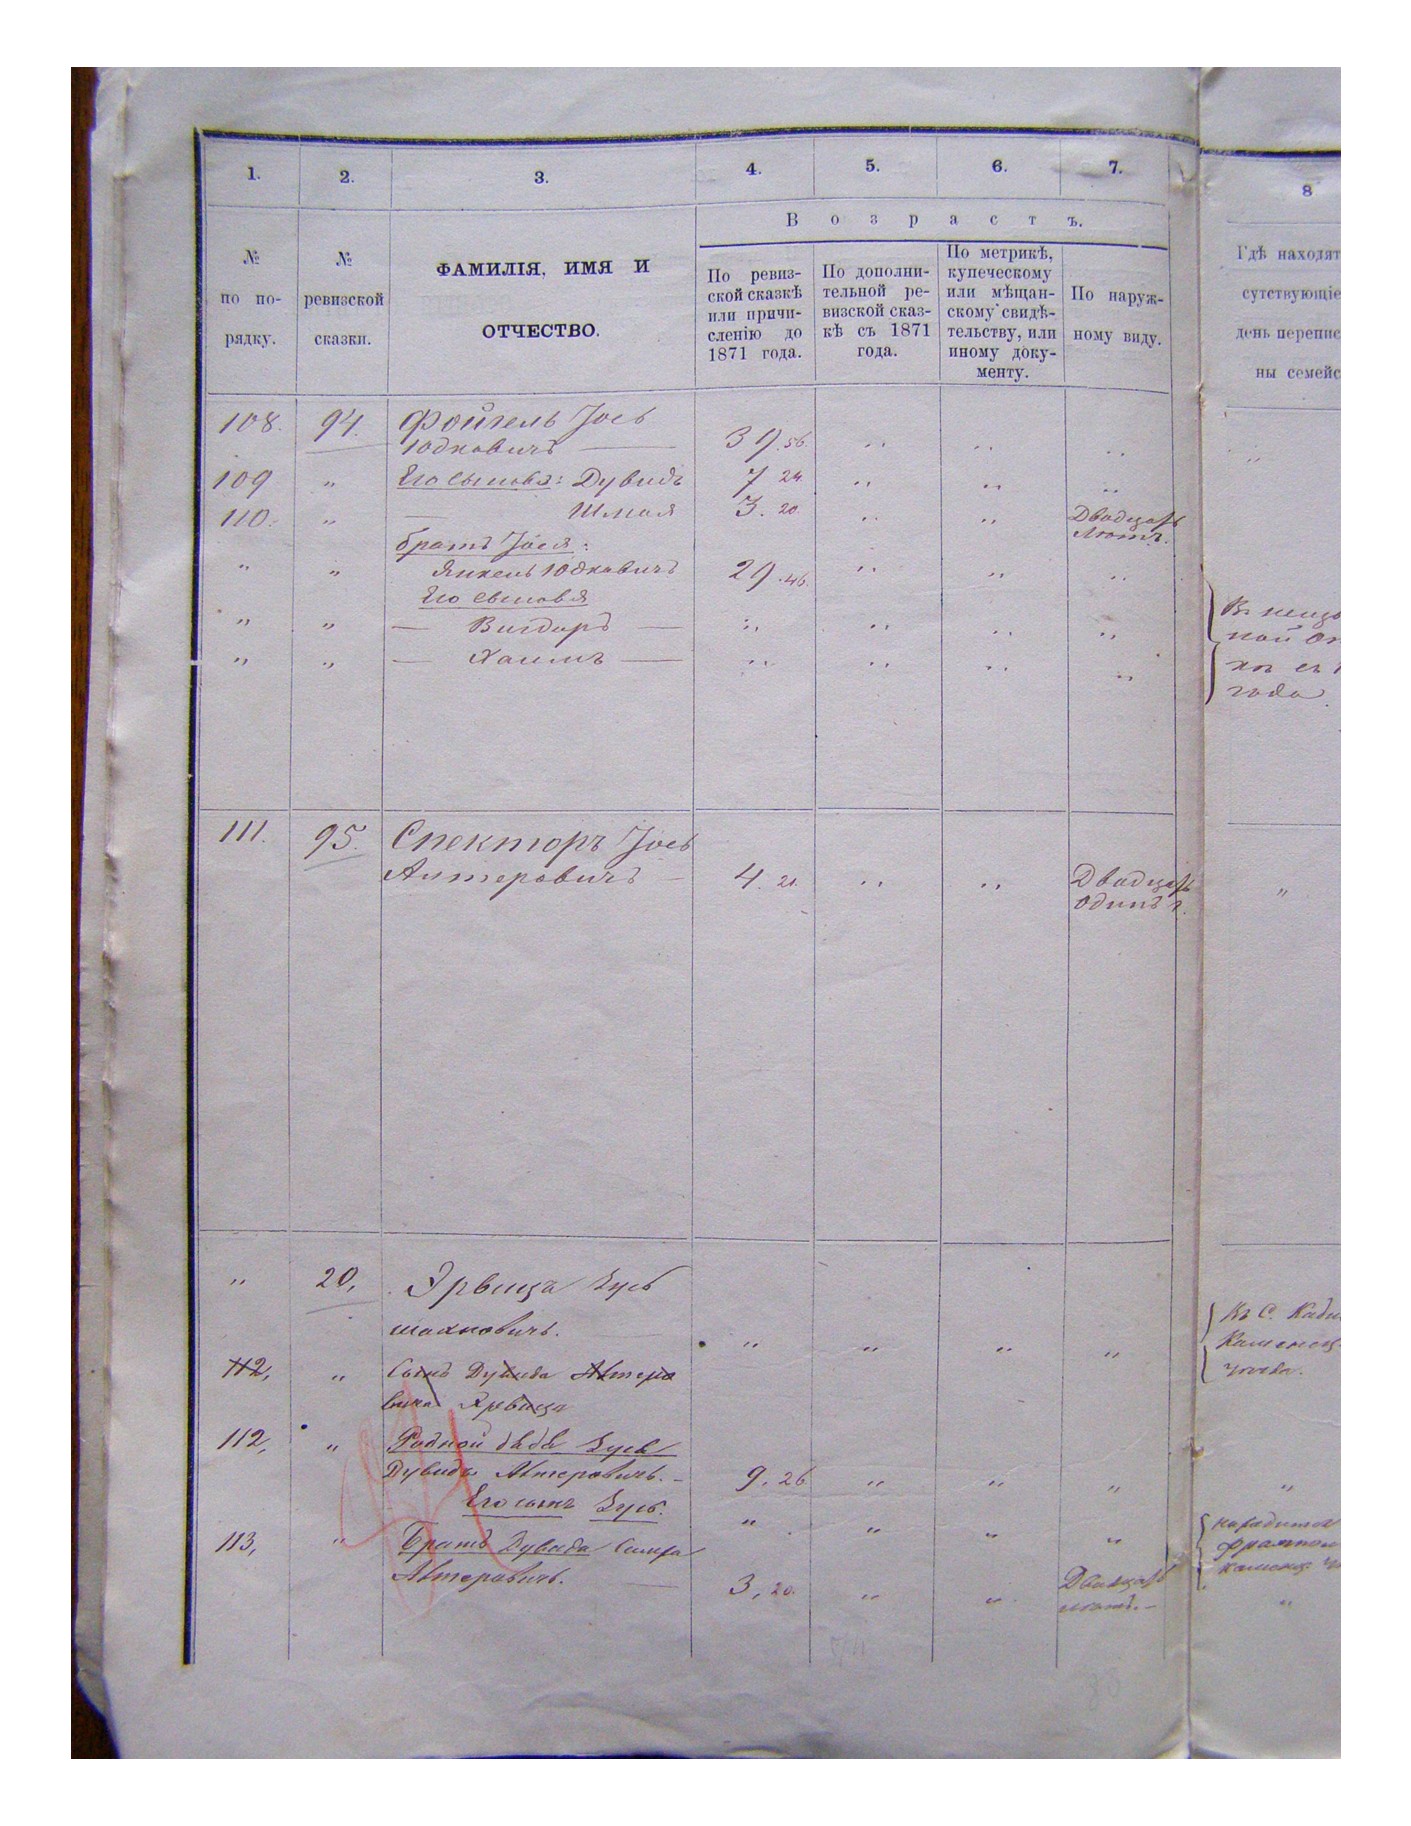 1. 2. 3. 4. 5. 6. 7. 8
№ по порядку.
№ ревизской сказки.
ФАМИЛІЯ, ИМЯ И ОТЧЕСТВО.
Возрастъ.
По ревиз-
ской сказкѣ
или причи-
сленію до
1871 года.
По дополни-
тельной ре-
визской сказ-
кѣ съ 1871
года.
По метрикѣ,
купеческому
или мѣщан-
скому свидѣ-
тельству, или
иному доку-
менту.
По наруж-
ному виду.
Гдѣ находят
сутствующіе
день перепис
ны семейс
108. 94. Фойгель Іось
Юдковичъ — 39. 56. „ „ „ „
109 „ Его сыновья: Дувидъ 7 24 „ „ „
110. „ — Шмая 3. 20 „ „ Двадцать
лѣтъ.
братъ Іося:
„ „ Янкель Юдковичъ 29. 46. „ „ „
Его сыновья
„ „ — Вигдоръ — „ „ „ „
„ „ — Хаимъ — „ „ „ „
года
111. 95. Спекторъ Іось
Алтеровичъ — 4. 21. „ „ Двадцать „
одинъ г.
„ 20, Ярвицъ Зусь
Шахновичъ. „ „ „ „
Къ С.
112, „ Сынъ Дувида Алтеро
вича Ярвицъ
112, „ Родной дѣдъ Зуся
Дувидъ Алтеровичъ. — 9, 26 „ „ „ „
Его сынъ Зусь. „ „ „ „
113, „ Братъ Дувида
Алтеровичъ. — 3, 20. „ „ Двадцать
лѣтъ. — „